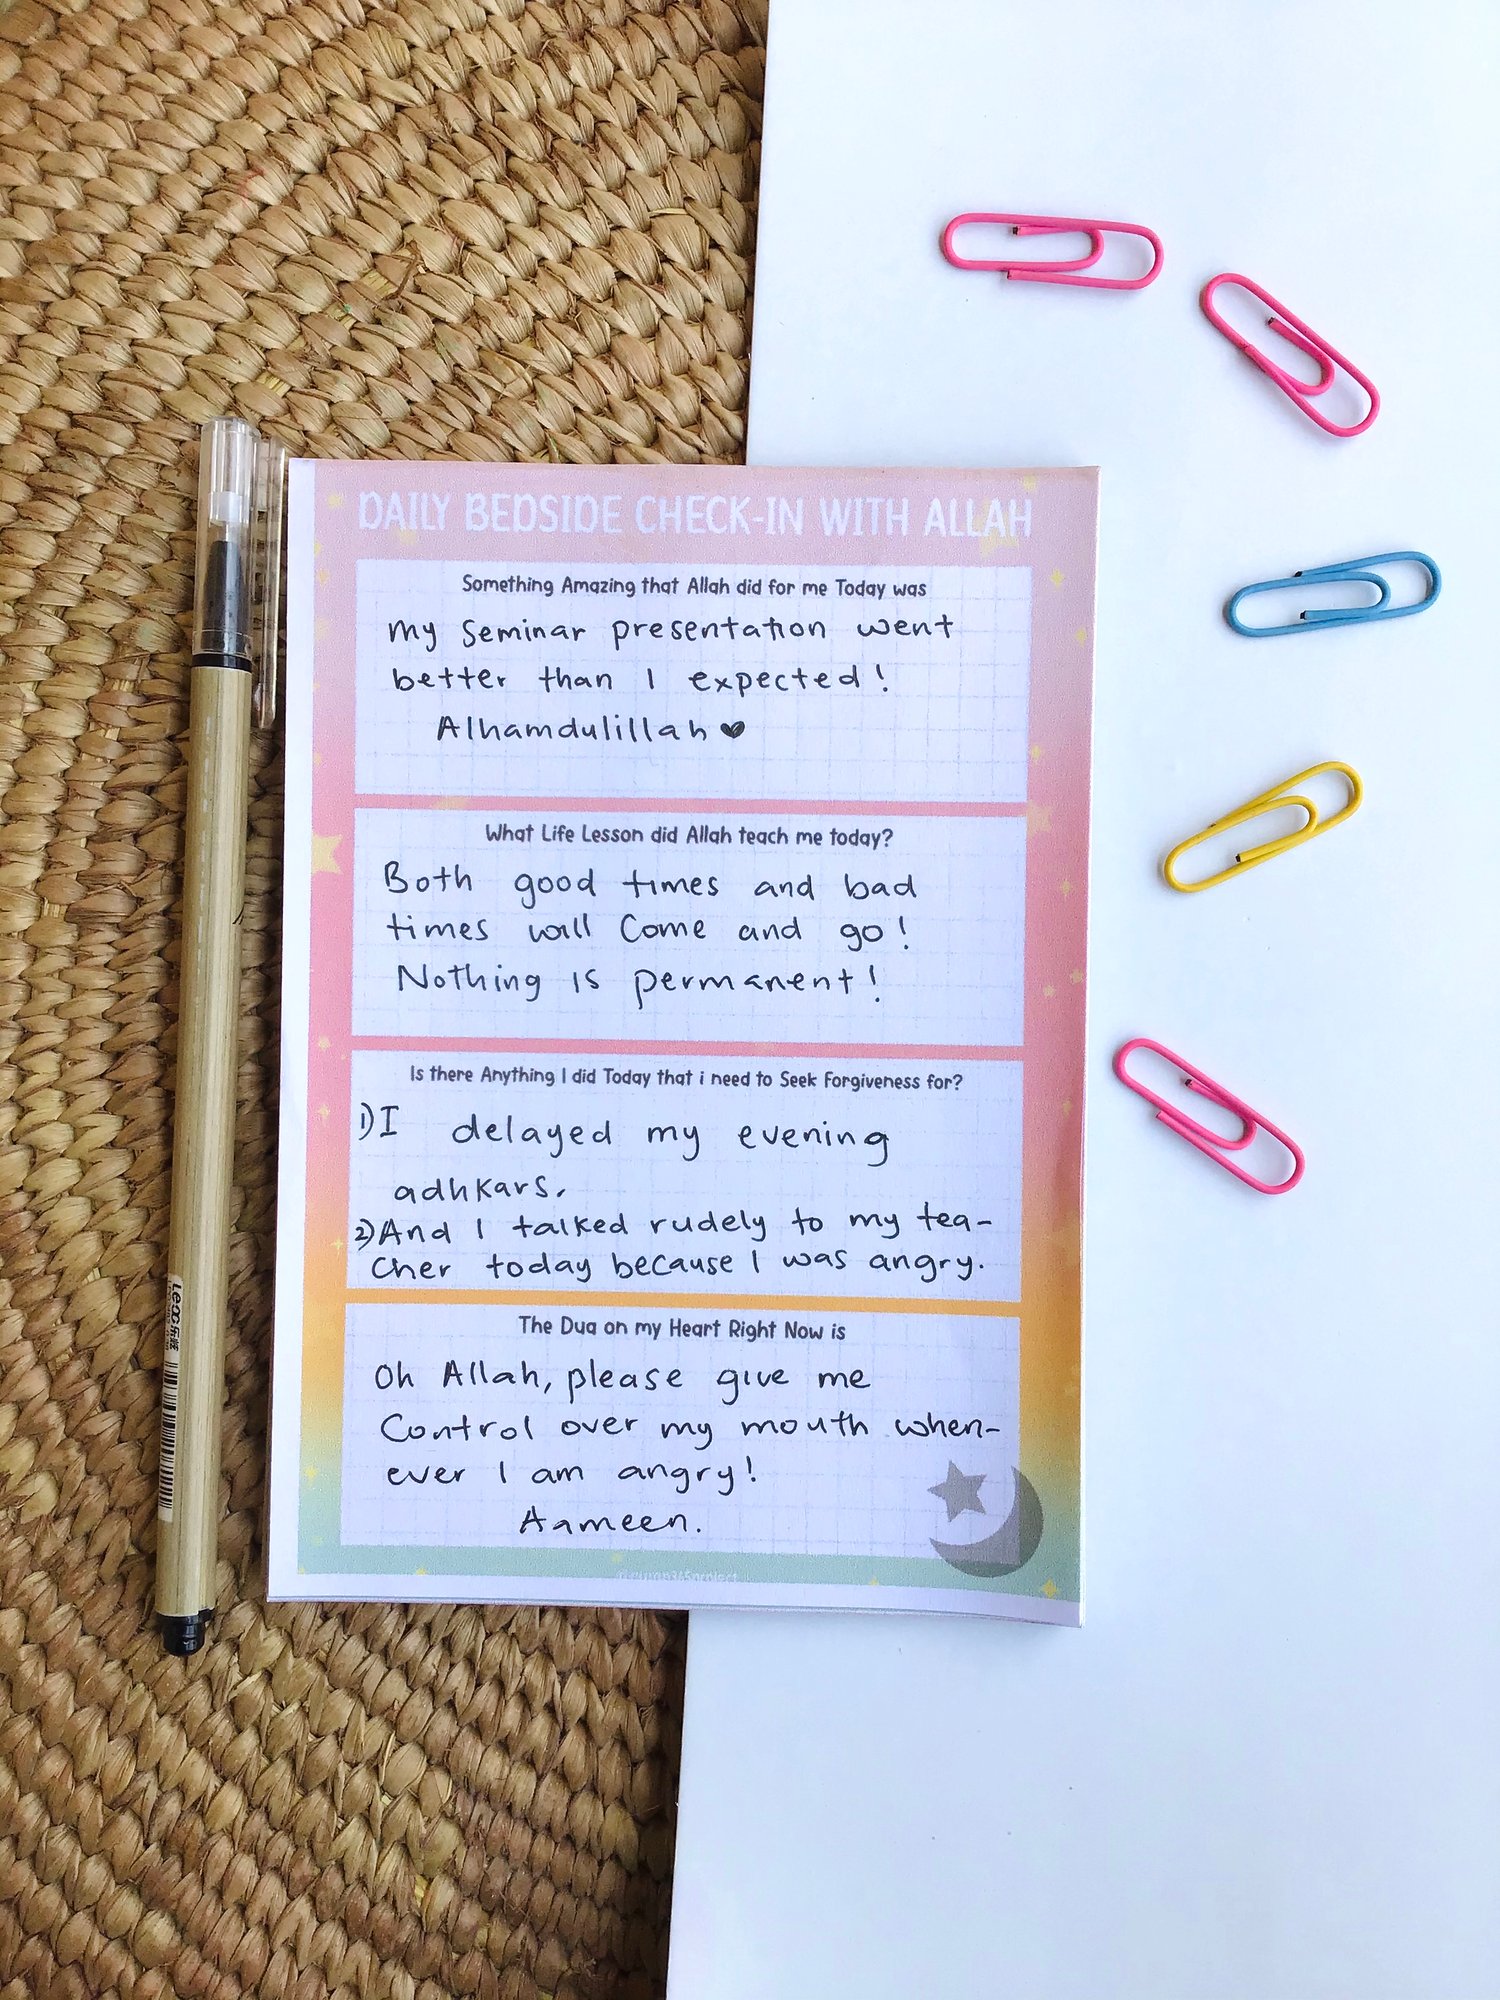 DAILY BEDSIDE CHECK-IN WITH ALLAH
Something Amazing that Allah did for me Today was
My seminar presentation went
better than I expected!
Alhamdulillah ♥
What Life Lesson did Allah teach me today?
Both good times and bad
times will come and go!
Nothing is permanent!
Is there Anything I did Today that i need to Seek Forgiveness for?
1) I delayed my evening
adhkars.
2) And I talked rudely to my tea-
cher today because I was angry.
The Dua on my Heart Right Now is
Oh Allah, please give me
Control over my mouth when-
ever I am angry!
Aameen.